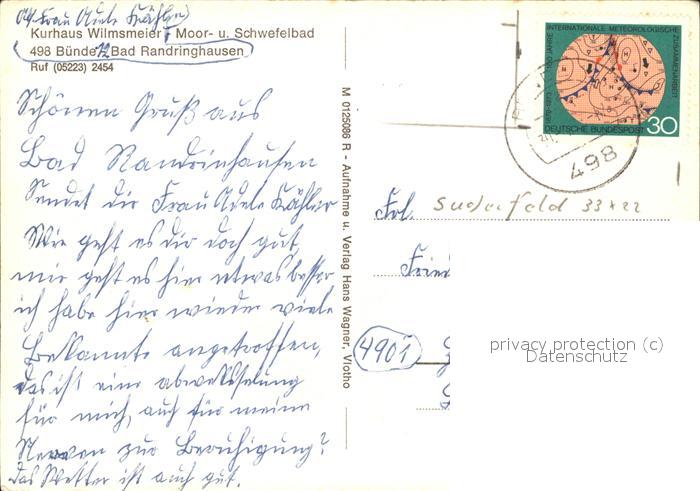 Frau Adele Kähler
Kurhaus Wilmsmeier, Moor- u. Schwefelbad
498 Bünde 12 Bad Randringhausen
Ruf (05223) 2454
Schönen Gruß aus
Bad Randrinhausen
Sendet dir Frau Adele Kähler
Wie geht es dir doch gut,
mir geht es hier etwas besser
ich habe hier wieder viele
Bekannte angetroffen,
das ist eine abwekslung
für mich, auch für meine
Nerven zur Beruhigung?
das Wetter ist auch gut.
M 0125086 R - Aufnahme u. Verlag Hans Wagner, Vlotho
100 JAHRE INTERNATIONALE METEOROLOGISCHE ZUSAMMENARBEIT
1873-1973
DEUTSCHE BUNDESPOST 30
498
Frl. Suderfeld 33+22
4901
privacy protection (c)
Datenschutz